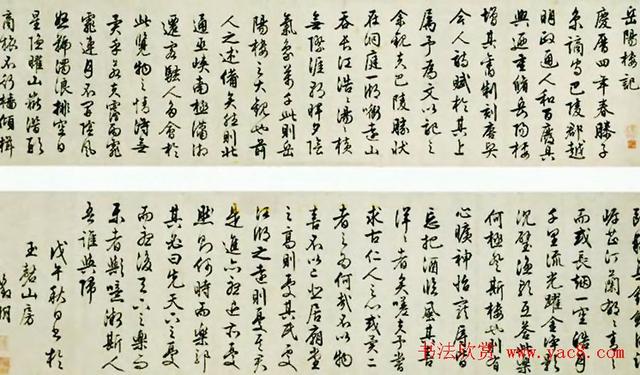 岳陽樓記
慶曆四年春滕子
京謫守巴陵郡越
明政通人和百廢具
興迺重修岳陽樓
增其舊制刻唐賢
今人詩賦於其上
屬予為文以記之
余觀夫巴陵勝狀
在洞庭一湖銜遠山
吞長江浩浩湯湯橫
無際涯朝暉夕陰
氣象萬千此則岳
陽樓之大觀也前
人之述備矣然則北
通巫峽南極瀟湘
遷客騷人多會於
此覽物之情得無
異乎若夫霪雨霏
霏連月不開陰風
怒號濁浪排空日
星隱耀山嶽潛形
商旅不行檣傾楫
岸芷汀蘭郁郁青青
而或長烟一空皓月
千里流光耀金靜影
沉璧漁歌互答此樂
何極登斯樓也則有
心曠神怡寵辱皆
忘把酒臨風其喜
洋洋者矣嗟夫予嘗
求古仁人之心或異二
者之為何哉不以物
喜不以己悲居廟堂
之高則憂其民處
江湖之遠則憂其君
是進亦憂退亦憂
然則何時而樂耶
其必曰先天下之憂
而憂後天下之樂而
樂者歟噫微斯人
吾誰與歸
戊午秋日書於
玉磬山房
徵明
书法欣赏 www.yac8.com